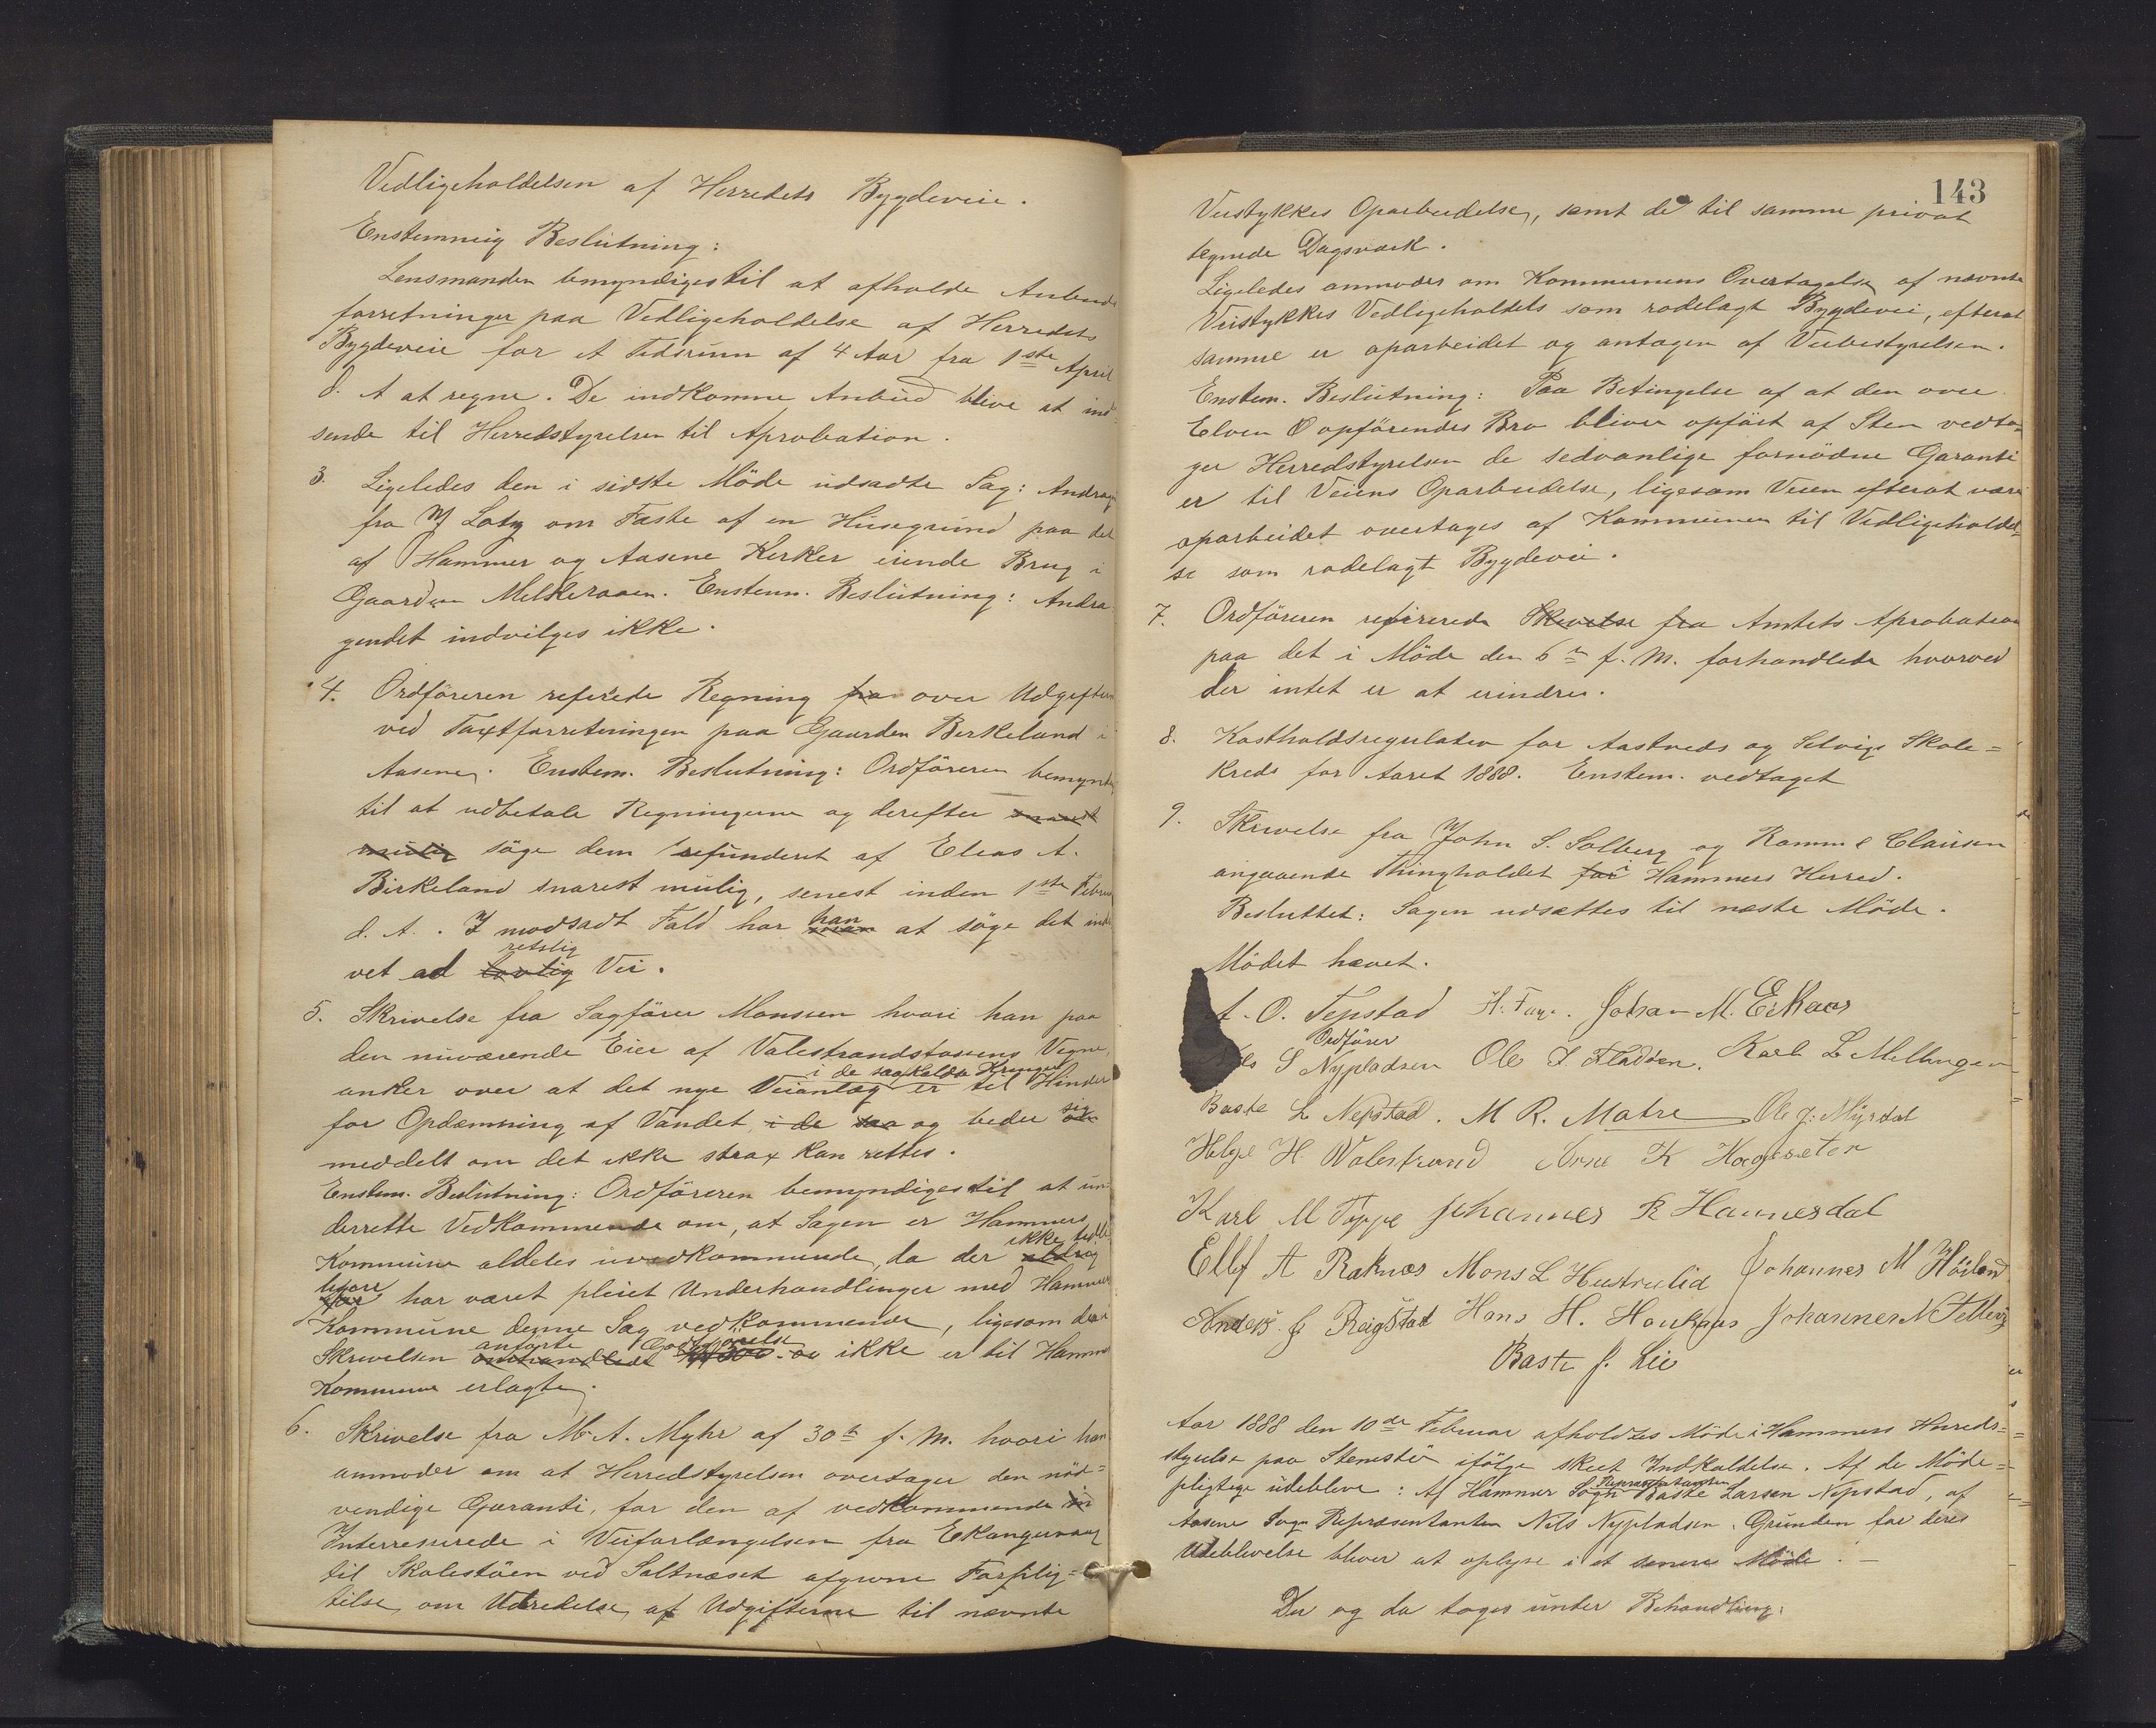 Vedligeholdelsen af Herredets Bygdeveie.
Enstemmig Beslutning:
Lensmanden bemyndiges til at afholde Anbuds
forretninger paa Vedligeholdelse af Herredets
Bygdeveie for et Tidsrum af 4 Aar fra 1ste April
d. A at regne. De indkomne Anbud blive at ind-
sende til Herredstyrelsen til Aprobation.
3. Ligeledes den i sidste Möde udsadte Sag: Andrag
fra M Loty om Fæste af en Husegrund paa det
af Hammer og Aasene Kirker eiende Brug i
Gaarden Melkeraaen. Enstem. Beslutning: Andra
gendet indvilges ikke.
4. Ordföreren refererede Regning fra over Udgiften
ved Taxtforretningen paa Gaarden Birkeland i
Aasene. Enstem. Beslutning: Ordföreren bemynd
til at udbetale Regningerne og derefter snarest
mulig söge dem refunderet af Elias A.
Birkeland snarest mulig, senest inden 1ste Febru
d. A.. I modsadt Fald har han at söge det ind
vet ad lovlig retslig Vei.
5. Skrivelse fra Sagförer Monssen hvori han paa
den nuværende Eier af Valestrandsfossens Vegne,
anker over at det nye Veianlæg i de saakaldte Kringer er til Hinder
for Opdæmning af Vandet, i de saa og beder sig
meddelt om det ikke strax kan rettes.
Enstem. Beslutning: Ordföreren bemyndiges til at un-
derrette Vedkommende om, at Sagen er Hammers
Kommune aldeles uvedkommende, da der aldrig ikke tidli
før har været pleiet Underhandlinger med Hammer
Kommune denne Sag vedkommende, ligesom den i
Skrivelsen omhandlede anførte Godtgjörelse ikke er til Hammer
Kommune erlagte.
6. Skrivelse fra M. A. Myhr af 30te f. M. hvori han
anmoder om at Herredstyrelsen overtager den nöd=
vendige Garanti, for den af vedkommende in
Interresserede i Veiforlængelsen fra Ekangervaag
til Skolestöen ved Saltnæset afgivne Forplig=
telse, om Udredelse af Udgifterne til nævnte
143
Veistykkes Oparbeidelse, samt de til samme privat
tegnede Dagsværk.
Ligeledes anmodes om Kommunens Overtagelse af nævnte
Veistykkes Vedligeholdels som rodelagt Bygdevei, efterat
samme er oparbeidet og antagen af Veibestyrelsen.
Enstem. Beslutning: Paa Betingelse af at den over
Elven O opförendes Bro bliver opfört af Sten vedta=
ger Herredstyrelsen de sedvanlige fornödne Garanti
er til Veiens Oparbeidelse, ligesom Veien efterat være
oparbeidet overtages af Kommunen til Vedligeholdel
se som rodelagt Bygdevei.
7. Ordföreren refererede Skrivelse fra Amtets Aprobation
paa det i Möde den 6te f. M. forhandlede hvorved
der intet er at erindre.
8. Kostholdsregulativ for Aastveds og Selvigs Skole=
kreds for Aaret 1888. Enstem. vedtaget
9. Skrivelse fra John S. Solberg og Ramm & Clausen
angaaende Thingholdet for i Hammers Herred.
Besluttet: Sagen udsættes til næste Möde.
Mödet hævet.
A. O. Tepstad H. Faye. Johan M. Eikaas
Ordfører
S Nypladsen Ole I. Fladöen. Karl L Mellingen
Baste L Nepstad. M R. Matre Ole J. Myrdal
Helge H Valestrand Arne K Hagesæter
Karl M Toppe Johannes R Hannesdal
Ellef A Raknæs Mons L Hustrulid Johannes M Höiland
Anders J Reigstad Hans H. Houkaas Johannes N Tellevig
Baste J. Lie
Aar 1888 den 10de Februar afholdtes Möde i Hammers Herreds=
styrelse paa Stenestö ifölge skeet Indkaldelse. Af de Möde=
pligtige udebleve: Af Hammer Sogn Repræsentanten Baste Larsen Nepstad, af
Aasene Sogn Repræsentanten Nils Nypladsen. Grunden for deres
Udeblivelse bliver at oplyse i et senere Möde. —
Der og da toges under Behandling: